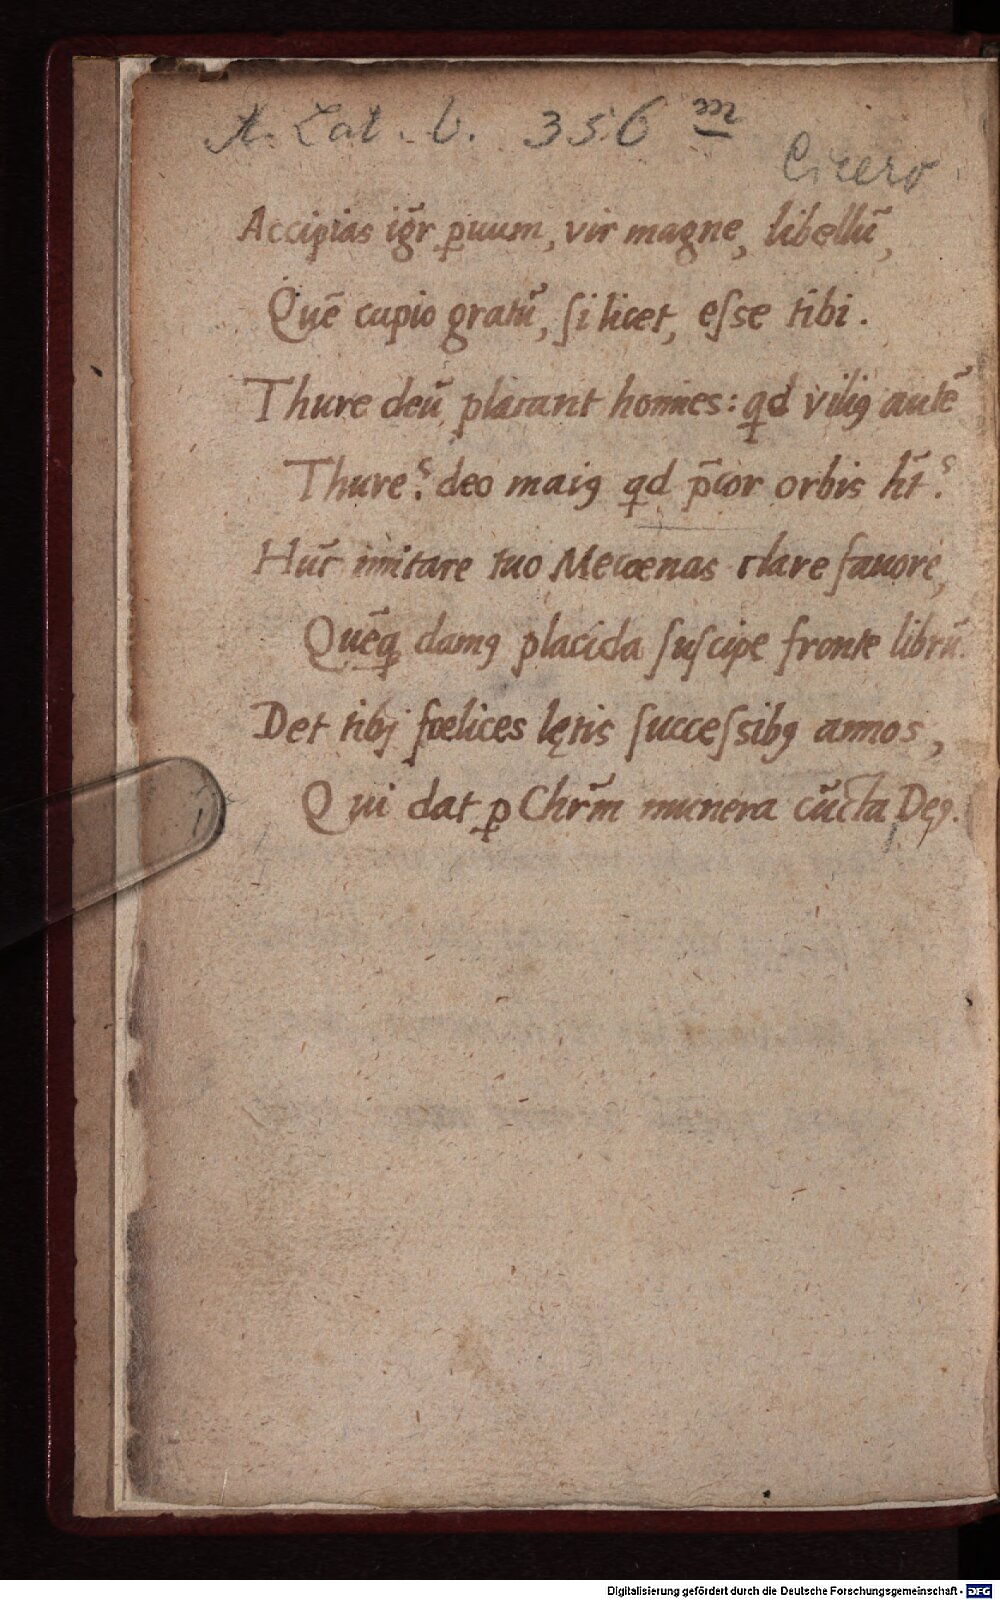 A. Lat. b. 356 m
Cicero
Accipias igr̃ ꝑuum, vir magne, libellū,
Quē cupio gratū, ſi licet, eſse tibi.
Thure deū placant homines: qd viliꝰ autē
Thure? deo maiꝰ qd p̄cor orbis ht̄?
Hūc imitare tuo Mecœnas clare fauore,
Quēq damꝰ placida ſuſcipe fronte librū.
Det tibj fœlices lętis ſucceſsibꝰ annos,
Qui dat ꝑ Chr̄m munera cūcta Deꝰ.
Digitalisierung gefördert durch die Deutsche Forschungsgemeinschaft - DFG